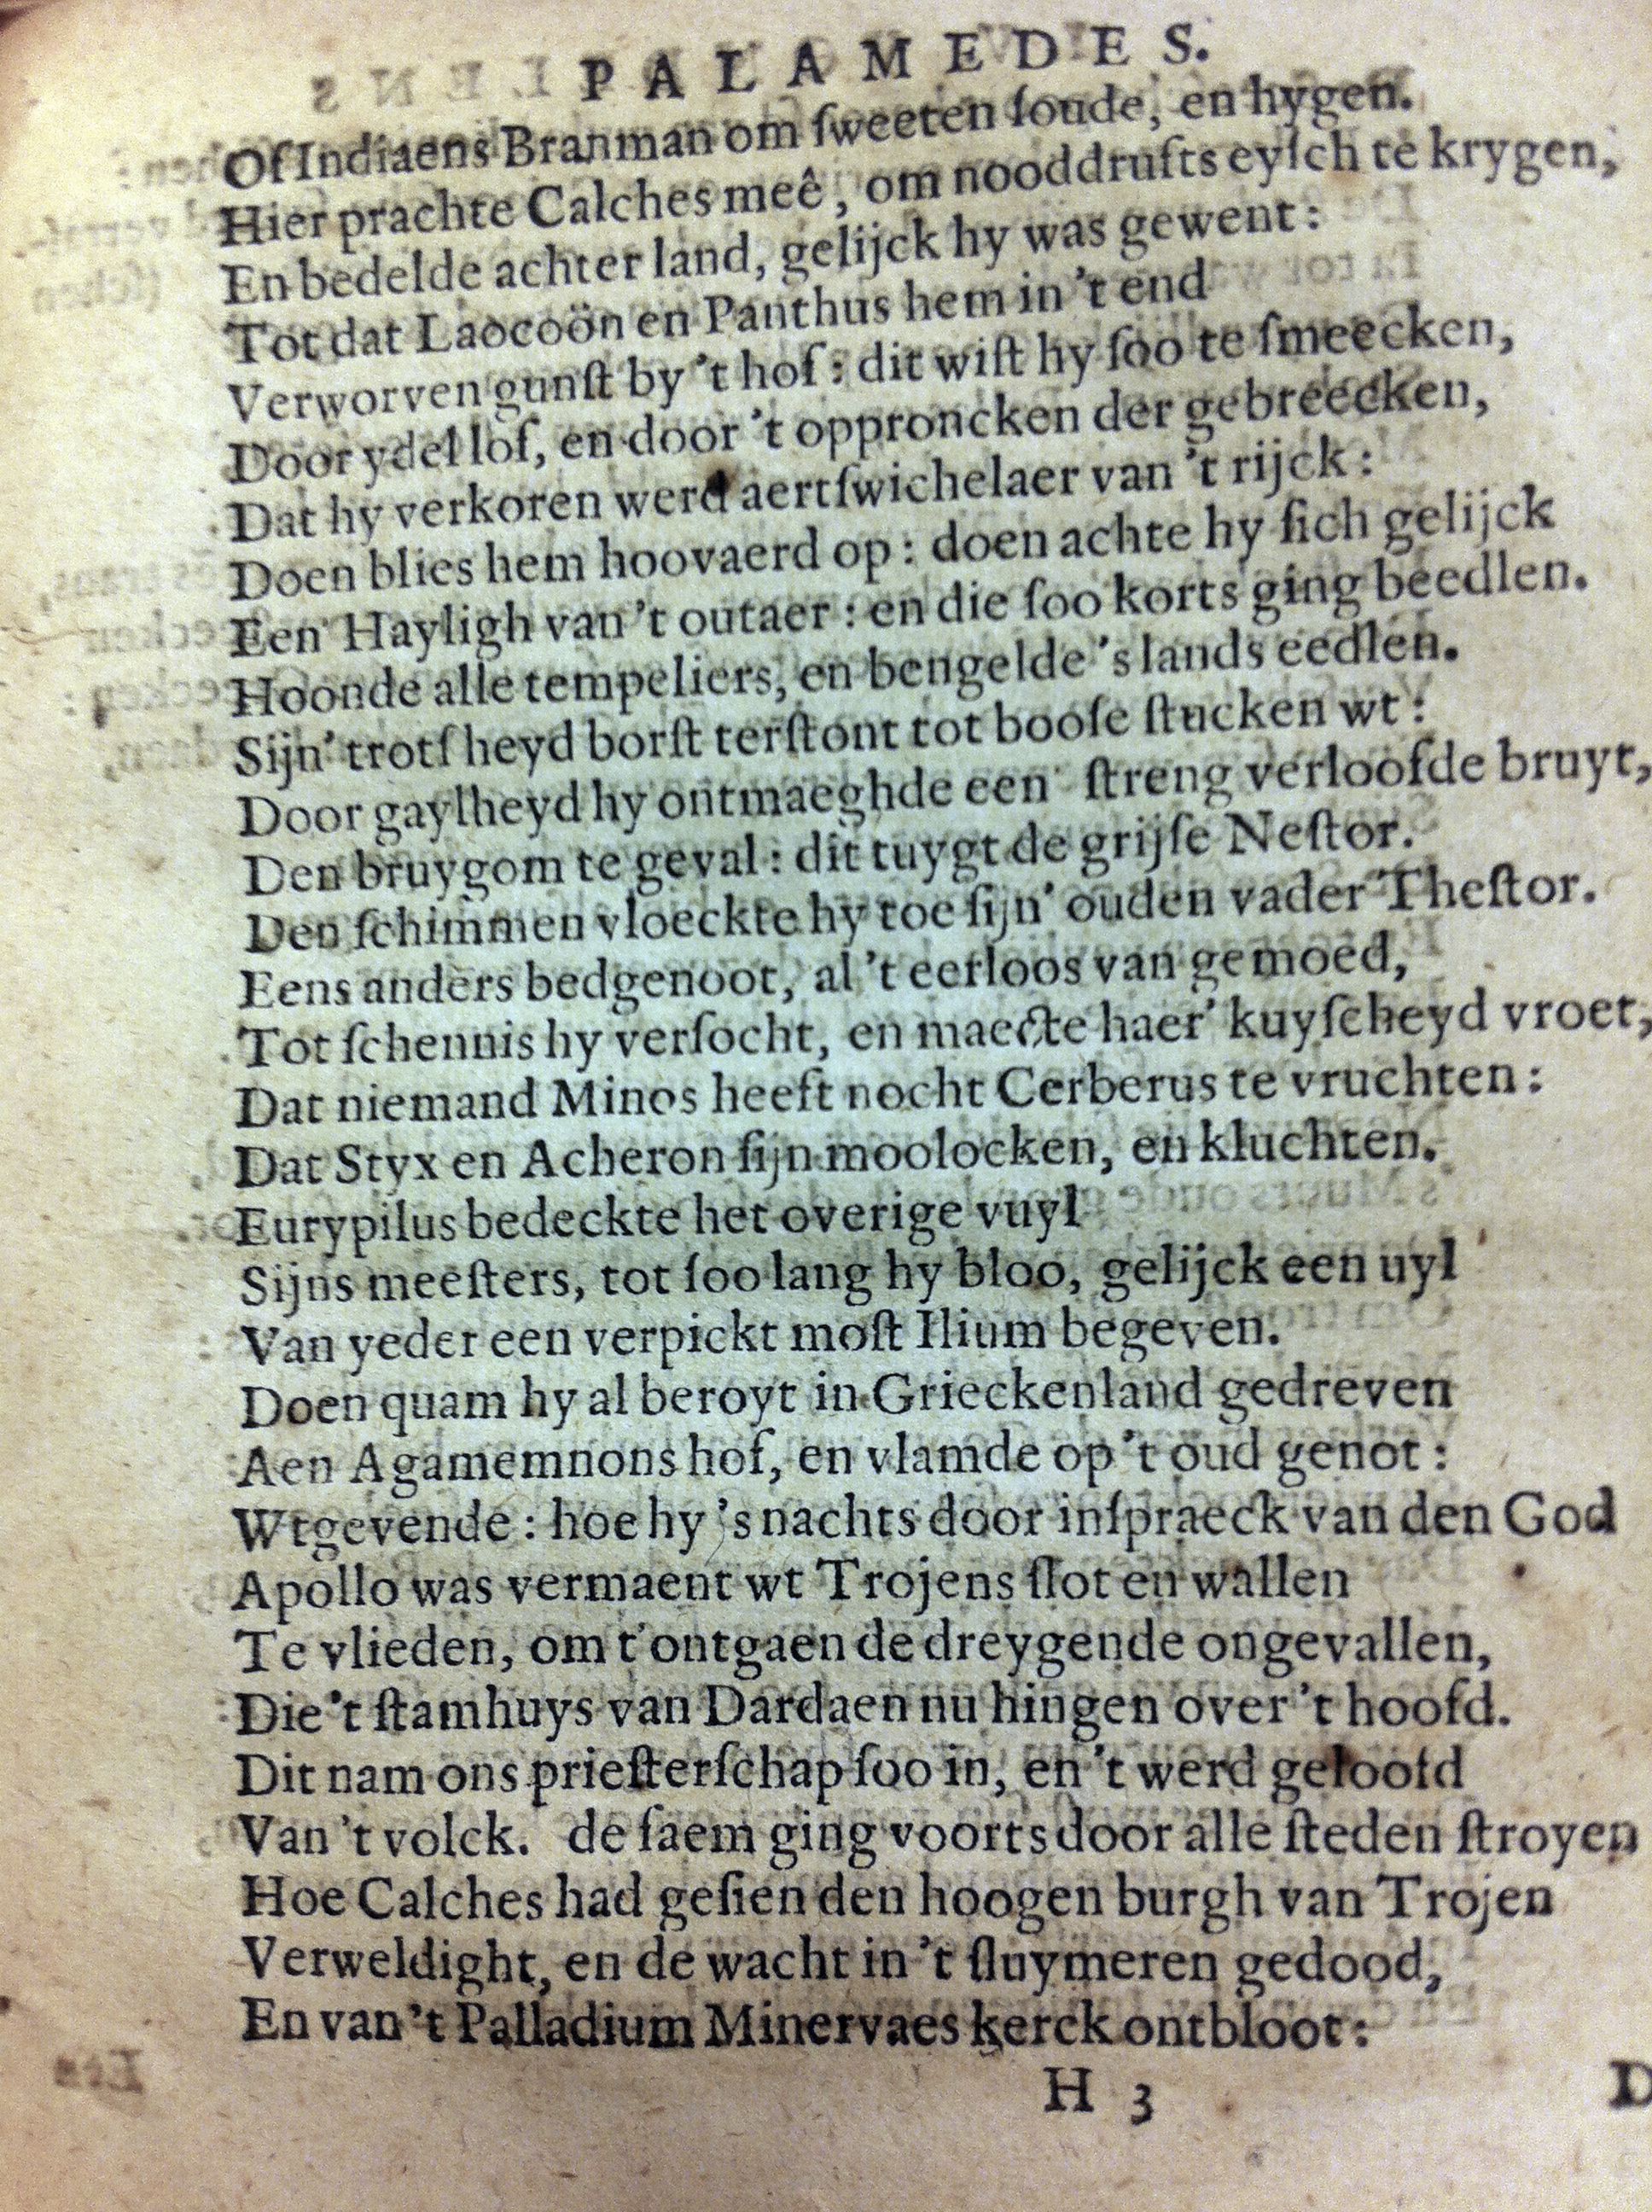 PALAMEDES.
Of Indiaens Branman om ſweeten ſoude, en hygen.
Hier prachte Calches meê, om nooddrufts eyſch te krygen,
En bedelde achter land, gelijck hy was gewent:
Tot dat Laocoön en Panthus hem in 't end
Verworven gunſt by 't hof: dit wiſt hy ſoo te ſmeecken,
Door ydel lof, en door 't oppproncken der gebreecken,
Dat hy verkoren werd aertſwichelaer van 't rijck:
Doen blies hem hoovaerd op: doen achte hy ſich gelijck
Een Hayligh van 't outaer: en die ſoo korts ging beedlen.
Hoonde alle tempeliers, en bengelde 's lands eedlen.
Sijn' trotſheyd borſt terſtont tot booſe ſtucken wt:
Door gaylheyd hy ontmaeghde een ſtreng verloofde bruyt,
Den bruygom te geval: dit tuygt de grijſe Neſtor.
Den ſchimmen vloeckte hy toe ſijn' ouden vader Theſtor.
Eens anders bedgenoot, al 't eerloos van gemoed,
Tot ſchennis hy verſocht, en maecte haer' kuyſcheyd vroet,
Dat niemand Minos heeft nocht Cerberus te vruchten:
Dat Styx en Acheron ſijn moolocken, en kluchten.
Eurypilus bedeckte het overige vuyl
Sijns meeſters, tot ſoo lang hy bloo, gelijck een uyl
Van yeder een verpickt moſt Ilium begeven.
Doen quam hy al beroyt in Grieckenland gedreven
Aen Agamemnons hof, en vlamde op 't oud genot:
Wtgevende: hoe hy 's nachts door inſpraeck van den God
Apollo was vermaent wt Trojens ſlot en wallen
Te vlieden, om t'ontgaen de dreygende ongevallen,
Die 't ſtamhuys van Dardaen nu hingen over 't hoofd.
Dit nam ons prieſterſchap ſoo in, en 't werd geloofd
Van 't volck. de faem ging voorts door alle ſteden ſtroyen
Hoe Calches had geſien den hoogen burgh van Trojen
Verweldight, en de wacht in 't ſluymeren gedood,
En van 't Palladium Minervaes kerck ontbloot:
H 3